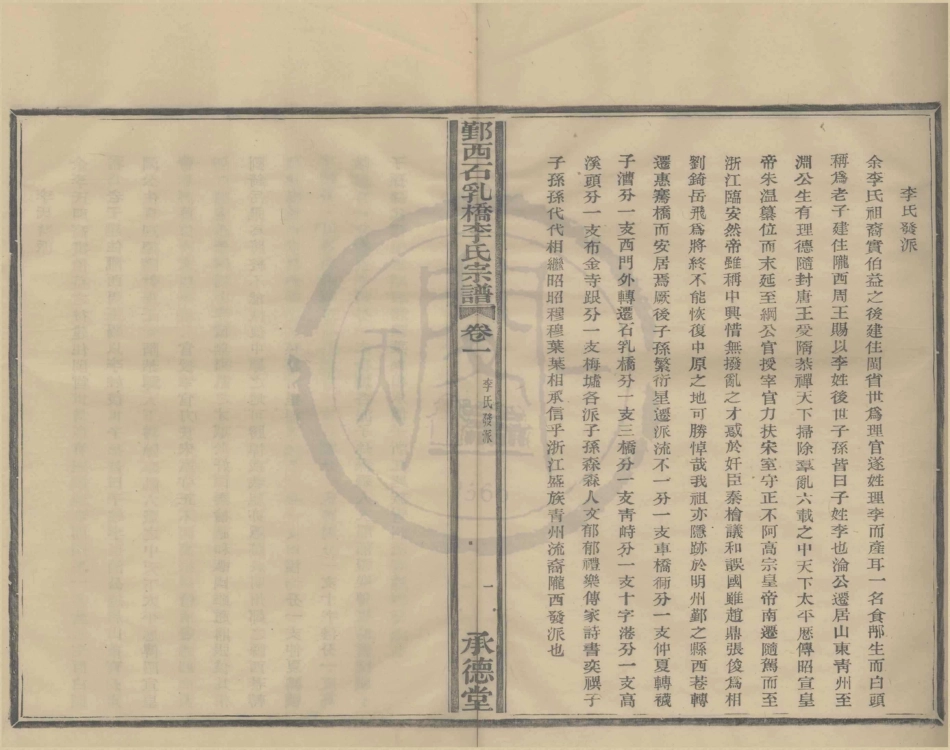 李氏發派
余李氏祖裔實伯益之後建住閩省世爲理官遂姓理李而產耳一名食郍生而白頭
稱爲老子建住隴西周王賜以李姓後世子孫皆曰子姓李也淪公遷居山東靑州至
淵公生有理德隨封唐王受隋恭禪天下掃除羣亂六載之中天下太平歷傳昭宣皇
帝朱温簒位而末延至綱公官授宰官力扶宋室守正不阿高宗皇帝南遷隨駕而至
浙江臨安然帝雖稱中興惜無撥亂之才惑於奸臣秦檜議和誤國雖趙鼎張俊爲相
劉錡岳飛爲將終不能恢復中原之地可勝悼哉我祖亦隱跡於明州鄞之縣西巷轉
遷惠騖橋而安居焉厥後子孫繁衍星遷派流不一分一支車橋衖分一支仲夏轉襪
子漕分一支西門外轉遷石乳橋分一支三橋分一支靑峙分一支十字港分一支高
溪頭分一支布金寺跟分一支梅墟各派子孫森森人文郁郁禮樂傳家詩書奕禩子
子孫孫代代相繼昭昭穆穆葉葉相承信乎浙江盛族靑州流裔隴西發派也
鄞西石乳橋李氏宗譜 卷一 李氏發派 一 承德堂